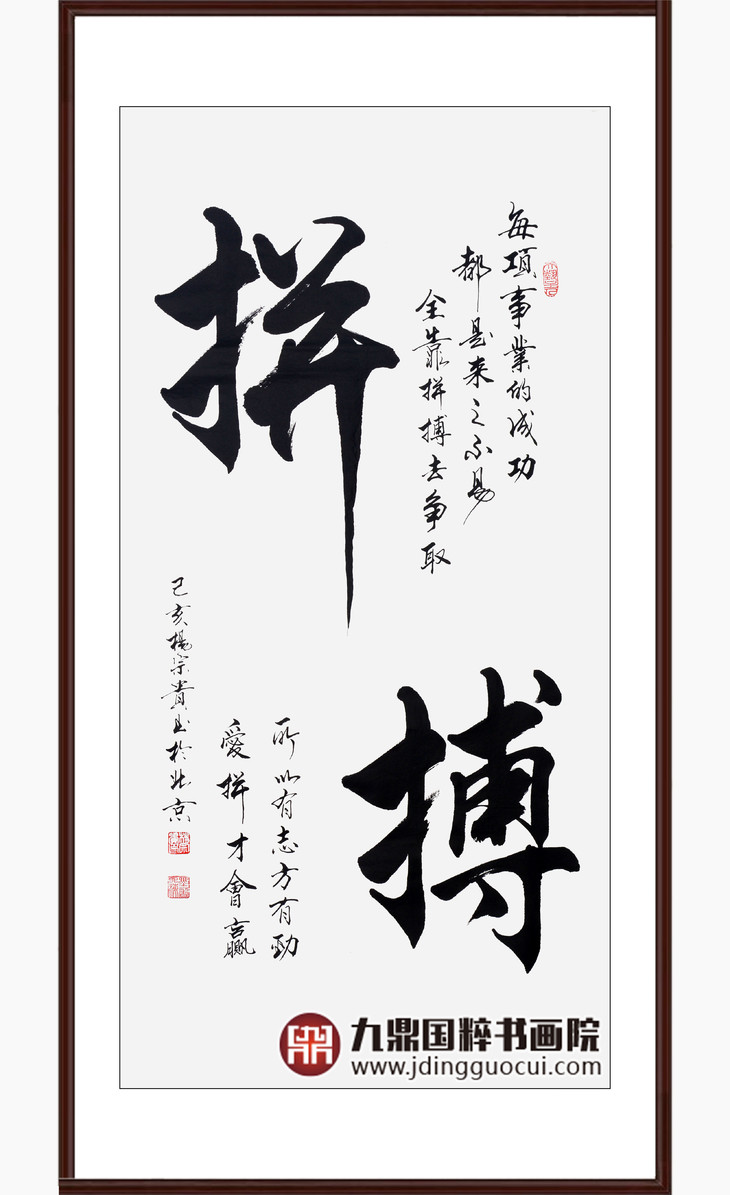 拼搏
每項事業的成功
都是来之不易
全靠拼搏去争取
所以有志方有劲
愛拼才會贏
己亥楊宗貴书於北京
九鼎国粹书画院
www.jdingguocui.com